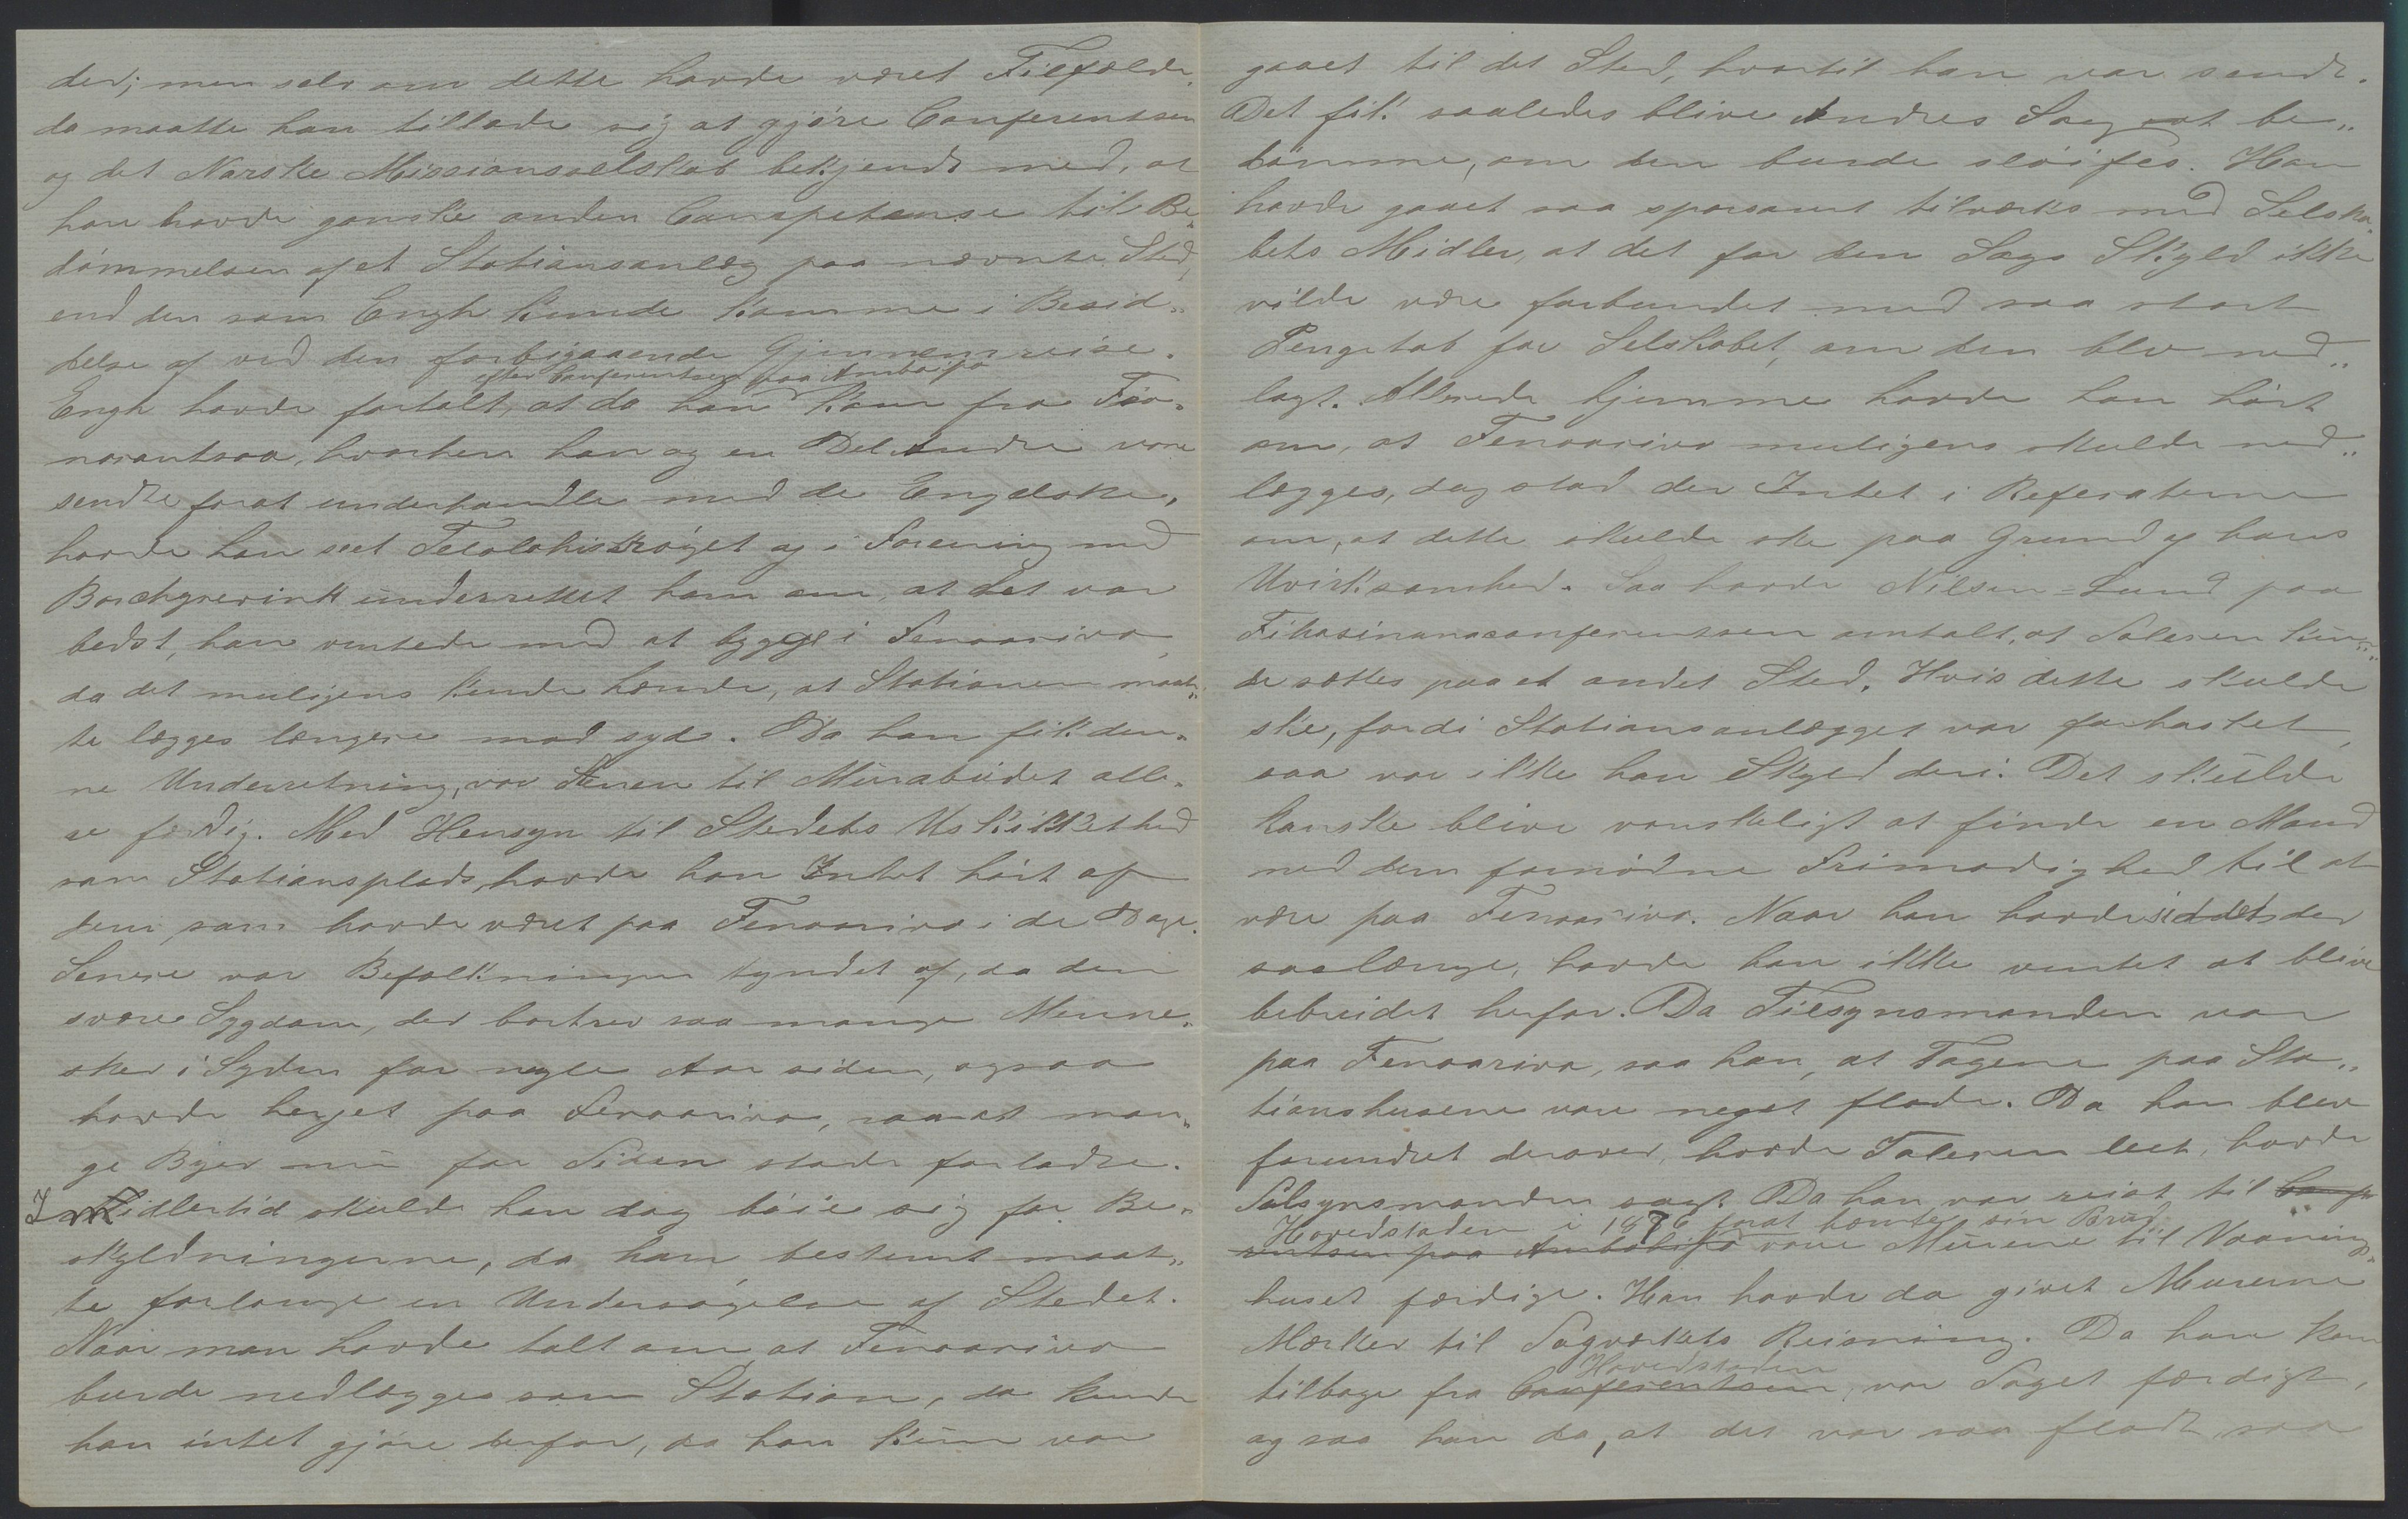 der; men selv om dette havde været Tilfælde,
da maatte han tillade sig at gjöre Conferentsen
og det Norske Missionsselskab bekjendt med, at
han havde ganske anden Competense til Be„
dömmelsen af et Stationsanlæg paa nævnte Sted,
end den som Engh kunde komme i Besid„
delse af ved den forbigaaende Gjennemreise.
efter Conferentsen paa Ambohipo
Engh havde fortalt, at da han kom fra Fia„
narantsoa, hvorhen han og en Del Andre vare
sendte forat underhandle med de Engelske,
havde han seet Telolohiströget og i Forening med
Borchgrevink underrettet ham om, at det var
bedst, han ventede med at bygge i Fenoarivo,
da det muligens kunde hænde, at Stationen maat„
te lægges længere mod syd. Da han fik den„
ne Underretning, var Stenen til Murarbeidet alle„
re færdig. Med Hensyn til Stedets Uskikkethed
som Stationsplads, havde han Intet hört af
dem, som havde været paa Fenoarivo i de Dage.
Senere var Befolkningen tyndet af, da den
svære Sygdom, der bortrev saa mange Menne„
sker i Syden for nogle Aar siden, ogsaa
havde herjet paa Fenoarivo, saaat man„
ge Byer nu for Tiden stode forladte.
Imidlertid skulde han dog böie sig for Be„
skyldningerne, da han bestemt maat„
te forlange en Undersögelse af Stedet.
Naar man havde talt om at Fenoarivo
burde nedlægges som Station, da kunde
han intet gjöre derfor, da han kun var
gaaet til det Sted, hvortil han var sendt.
Det fik saaledes blive Andres Sag at be„
dömme, om den burde slöifes. Han
havde gaaet saa sparsomt tilværks med Selska„
bets Midler, at det for den Sags Skyld ikke
vilde være forbundet med saa stort
Pengetab for Selskabet, om den blev ned„
lagt. Allerede hjemme havde han hört
om, at Fenoarivo muligens skulde ned„
lægges, dog stod der Intet i Referaterne
om, at dette skulde ske paa Grund af hans
Uvirksomhed. Saa havde Nilsen=Lund paa
Fihasinanaconferentsen omtalt, at Taleren kun„
de sættes paa et andet Sted. Hvis dette skulde
ske, fordi Stationsanlægget var forhastet,
saa var ikke han Skyld deri. Det skulde
kanske blive vanskeligt at finde en Mand
med den fornödne Frimodighed til at
være paa Fenoarivo. Naar han havde siddet der
saalænge, havde han ikke ventet at blive
bebreidet herfor. Da Tilsynsmanden var
paa Fenoarivo, saa han, at Tagene paa Sta„
tionshusene vare noget flade. Da han blev
forundret derover, havde Taleren leet, havde
Tilsynsmanden sagt. Da han var reist til Confe
Hovedstaden i 1876 forat hente sin Brud
rentsen paa Ambohipo vare Murene til Vaanings„
huset færdige. Han havde da givet Murerne
Mærker til Tagværkets Reisning. Da han kom
Hovedstaden
tilbage fra Conferentsen, var Taget færdigt,
og saa han da, at det var saa fladt, saa